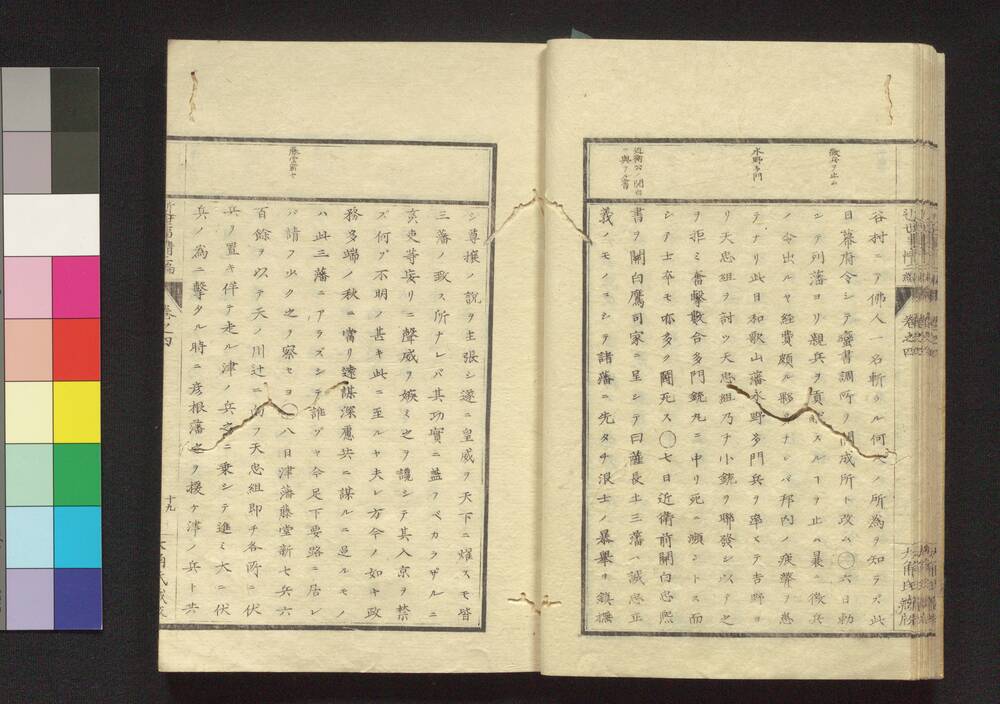 徴兵ヲ止ム
水野多門
近衛公ノ関白
ニ與フル書
谷村ニテ佛人一名斬ラル何人ノ所為ヲ知ラズ此
日幕府令シテ蠻書調所ヲ開成所ト改ム〇六日勅
シテ列藩ヨリ親兵ヲ貢スルヿヲ止ム曩ニ徴兵
ノ令出ルヤ経費頗ル夥多ナレバ邦内ノ疲弊ヲ慮
テナリ此日和歌山藩水野多門兵ヲ率ヰテ吉野ヨ
リ天忠組ヲ討ツ天忠組乃チ小銃ヲ聯發シ以テ之
ヲ拒ミ奮撃數合多門銃丸ニ中リ死ニ瀕ントス而
シテ士卒モ亦多ク鬪死ス〇七日近衛前關白忠熙
書ヲ關白鷹司家ニ呈シテ曰薩長土三藩ハ誠忠正
義ノモノユヱヲ諸藩ニ先タチ浪士ノ暴舉ヲ鎮撫
藤堂新七
シ尊攘ノ説ヲ主張シ遂ニ皇威ヲ天下ニ燿スモ皆
三藩ノ致ス所ナレバ其功實ニ蓋フベカラザルニ
奸吏等妄リニ聲威ヲ嫉ミ之ヲ讒シテ其入京ヲ禁
ズ何ゾ不明ノ甚キ此ニ至ルヤ夫レ方今ノ如キ政
務多端ノ秋ニ當リ遠謀深慮共ニ謀ルニ足ルモノ
ハ此三藩ニアラズシテ誰ゾヤ今足下要路ニ居レ
バ請フ少ク之ヲ察セヨ〇八日津藩藤堂新七兵六
百餘ヲ以テ天ノ川辻ニ向フ天忠組即チ各所ニ伏
兵ヲ置キ佯テ走ル津ノ兵之ニ乗シテ進ミ大ニ伏
兵ノ為ニ撃タル時ニ彦根藩之ヲ援ケ津ノ兵ト共
巻之四
十九